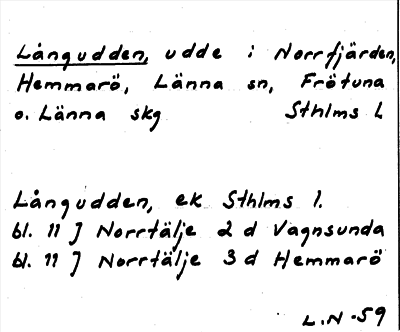 Långudden, udde i Norrfjärden,
Hemmarö, Länna sn, Frötuna
o. Länna skg Sthlms L
Långudden, ek Sthlms l.
bl. 11 J Norrtälje 2 d Vagnsunda
bl. 11 J Norrtälje 3 d Hemmarö
L.N -59